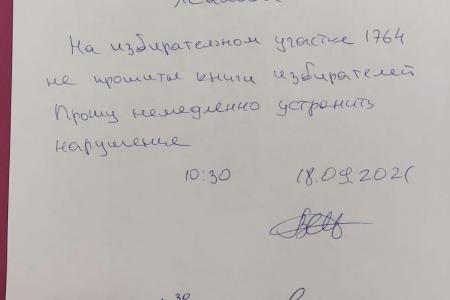 На избирательном участке 1764
не прошиты книги избирателей
Прошу немедленно устранить
нарушение
10:30 18.09.2021